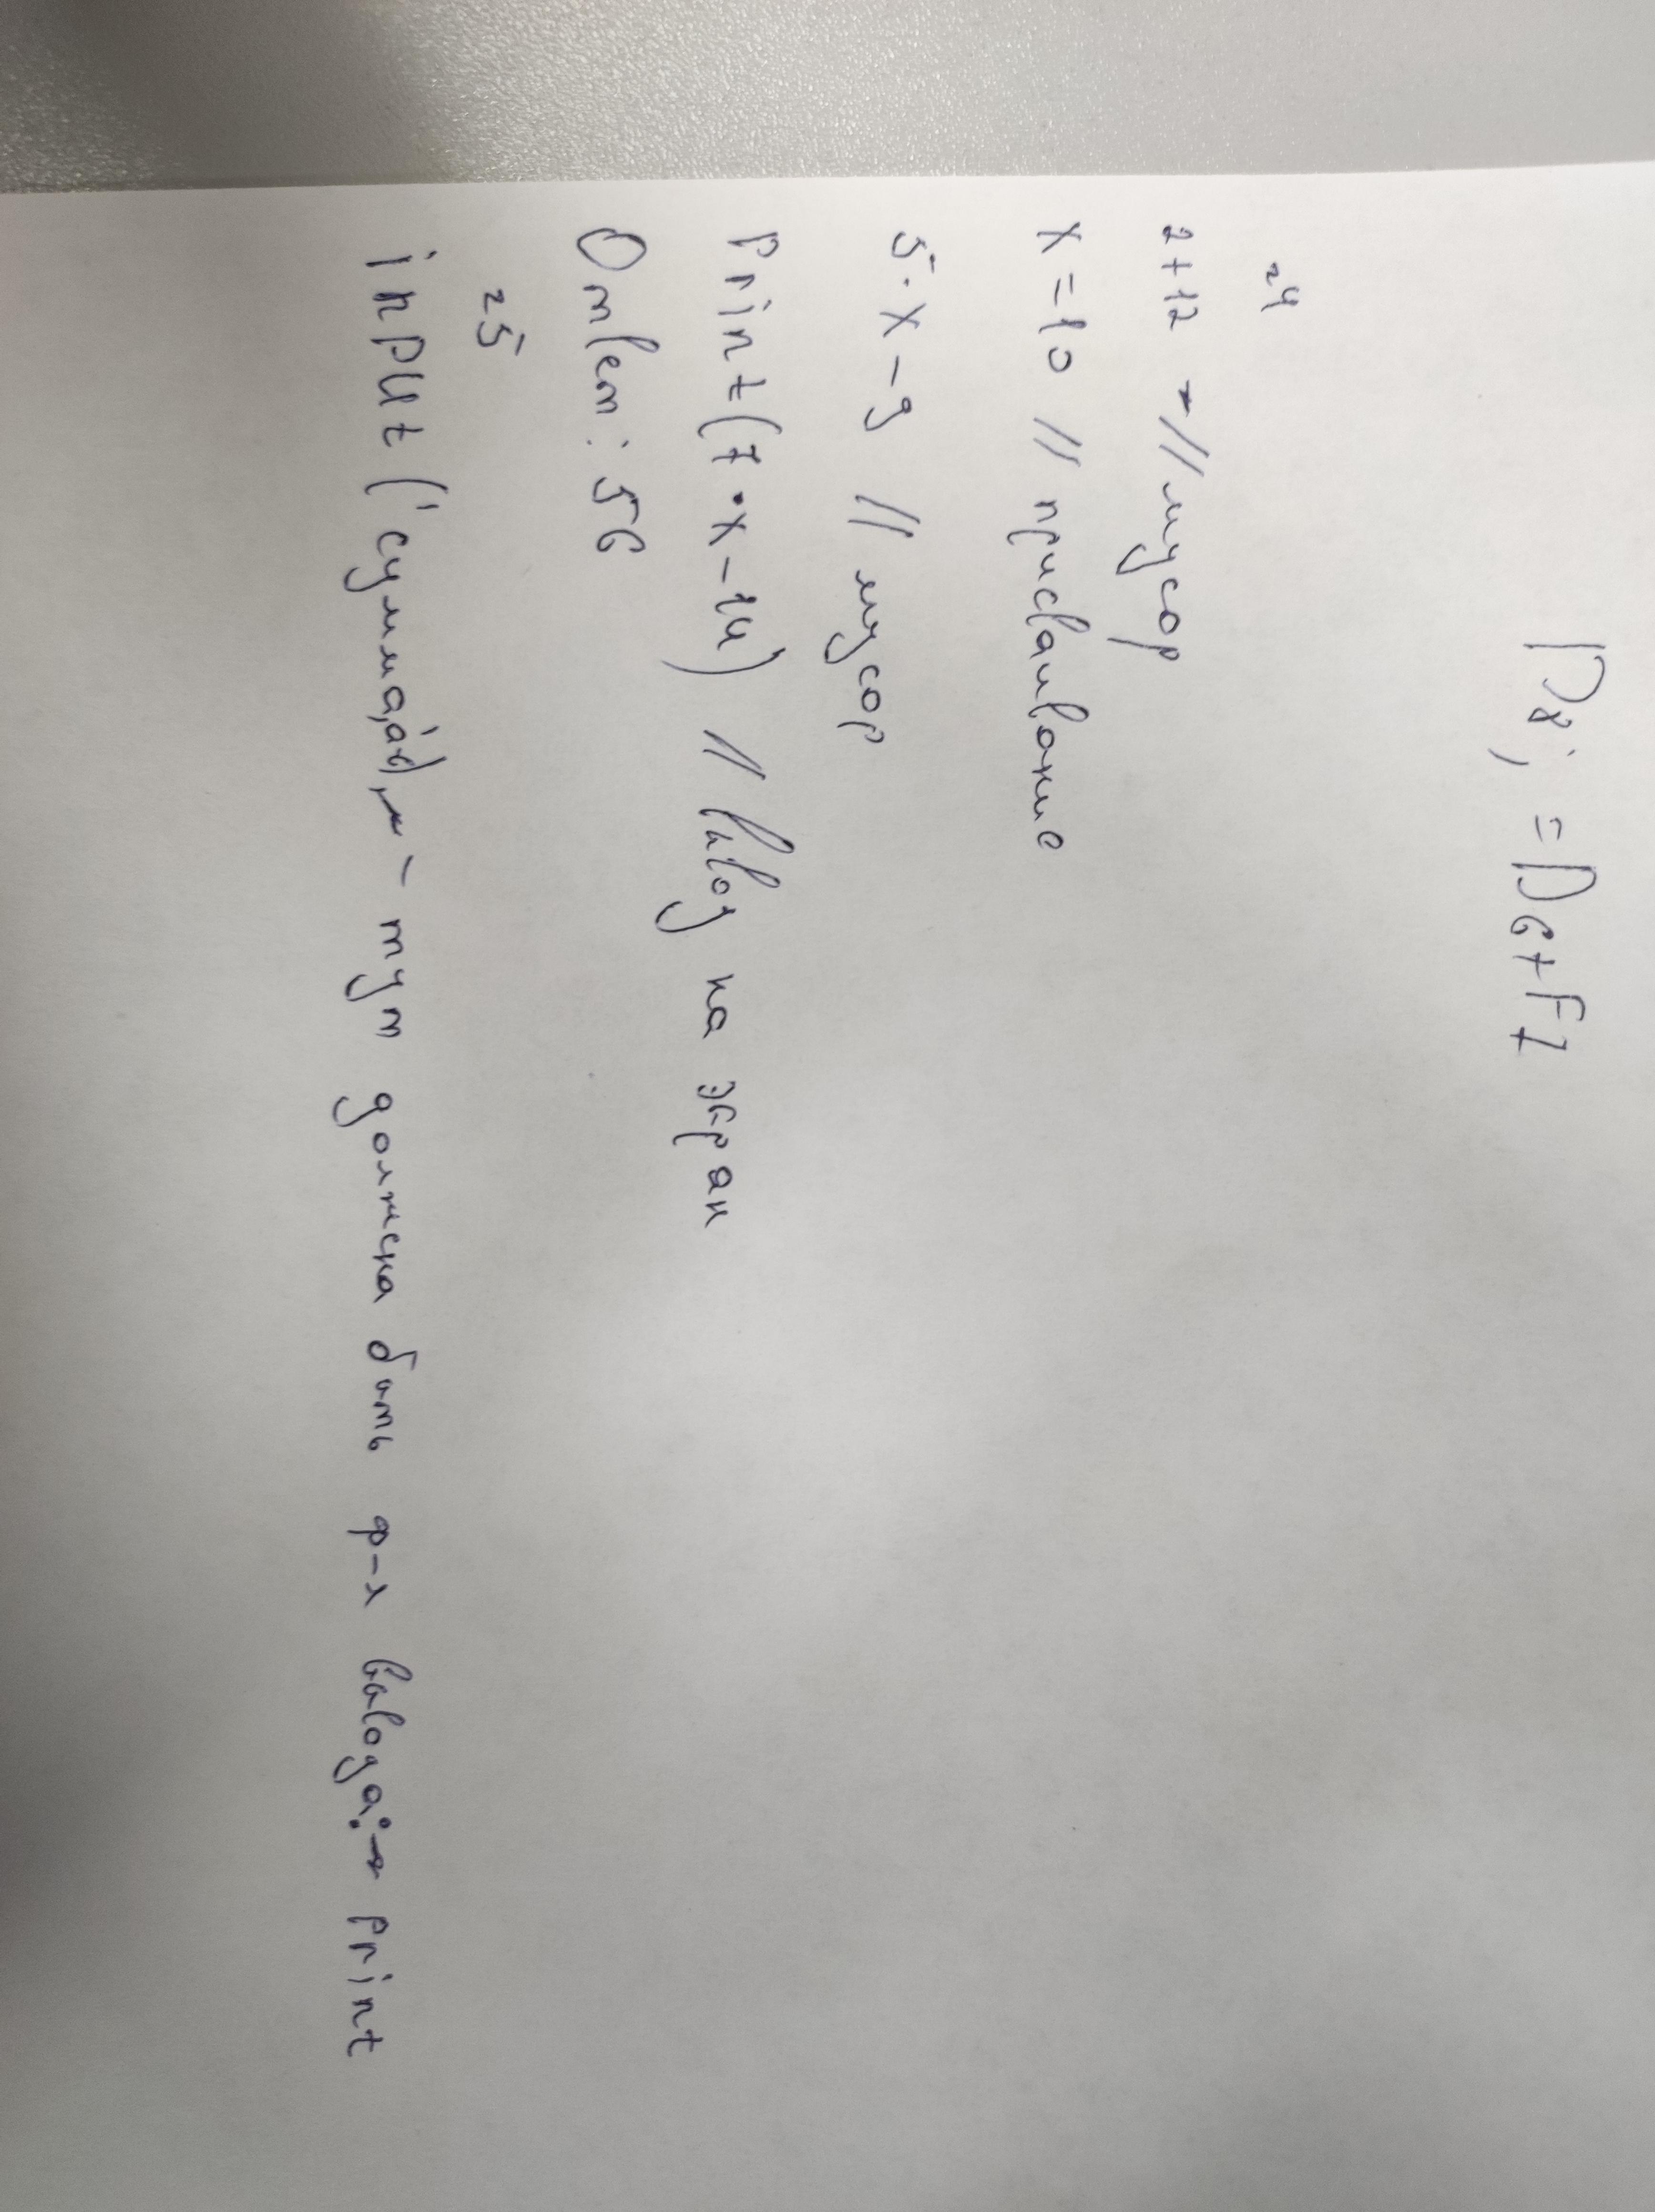 D8; =D6+F7
24
2+12 // мусор
x=10 // присваивание
5·x-9 // мусор
Print(7·x-14) // вывод на экран
Ответ: 56
25
input('сумма, - тут должна быть ф-я вывода: → Print